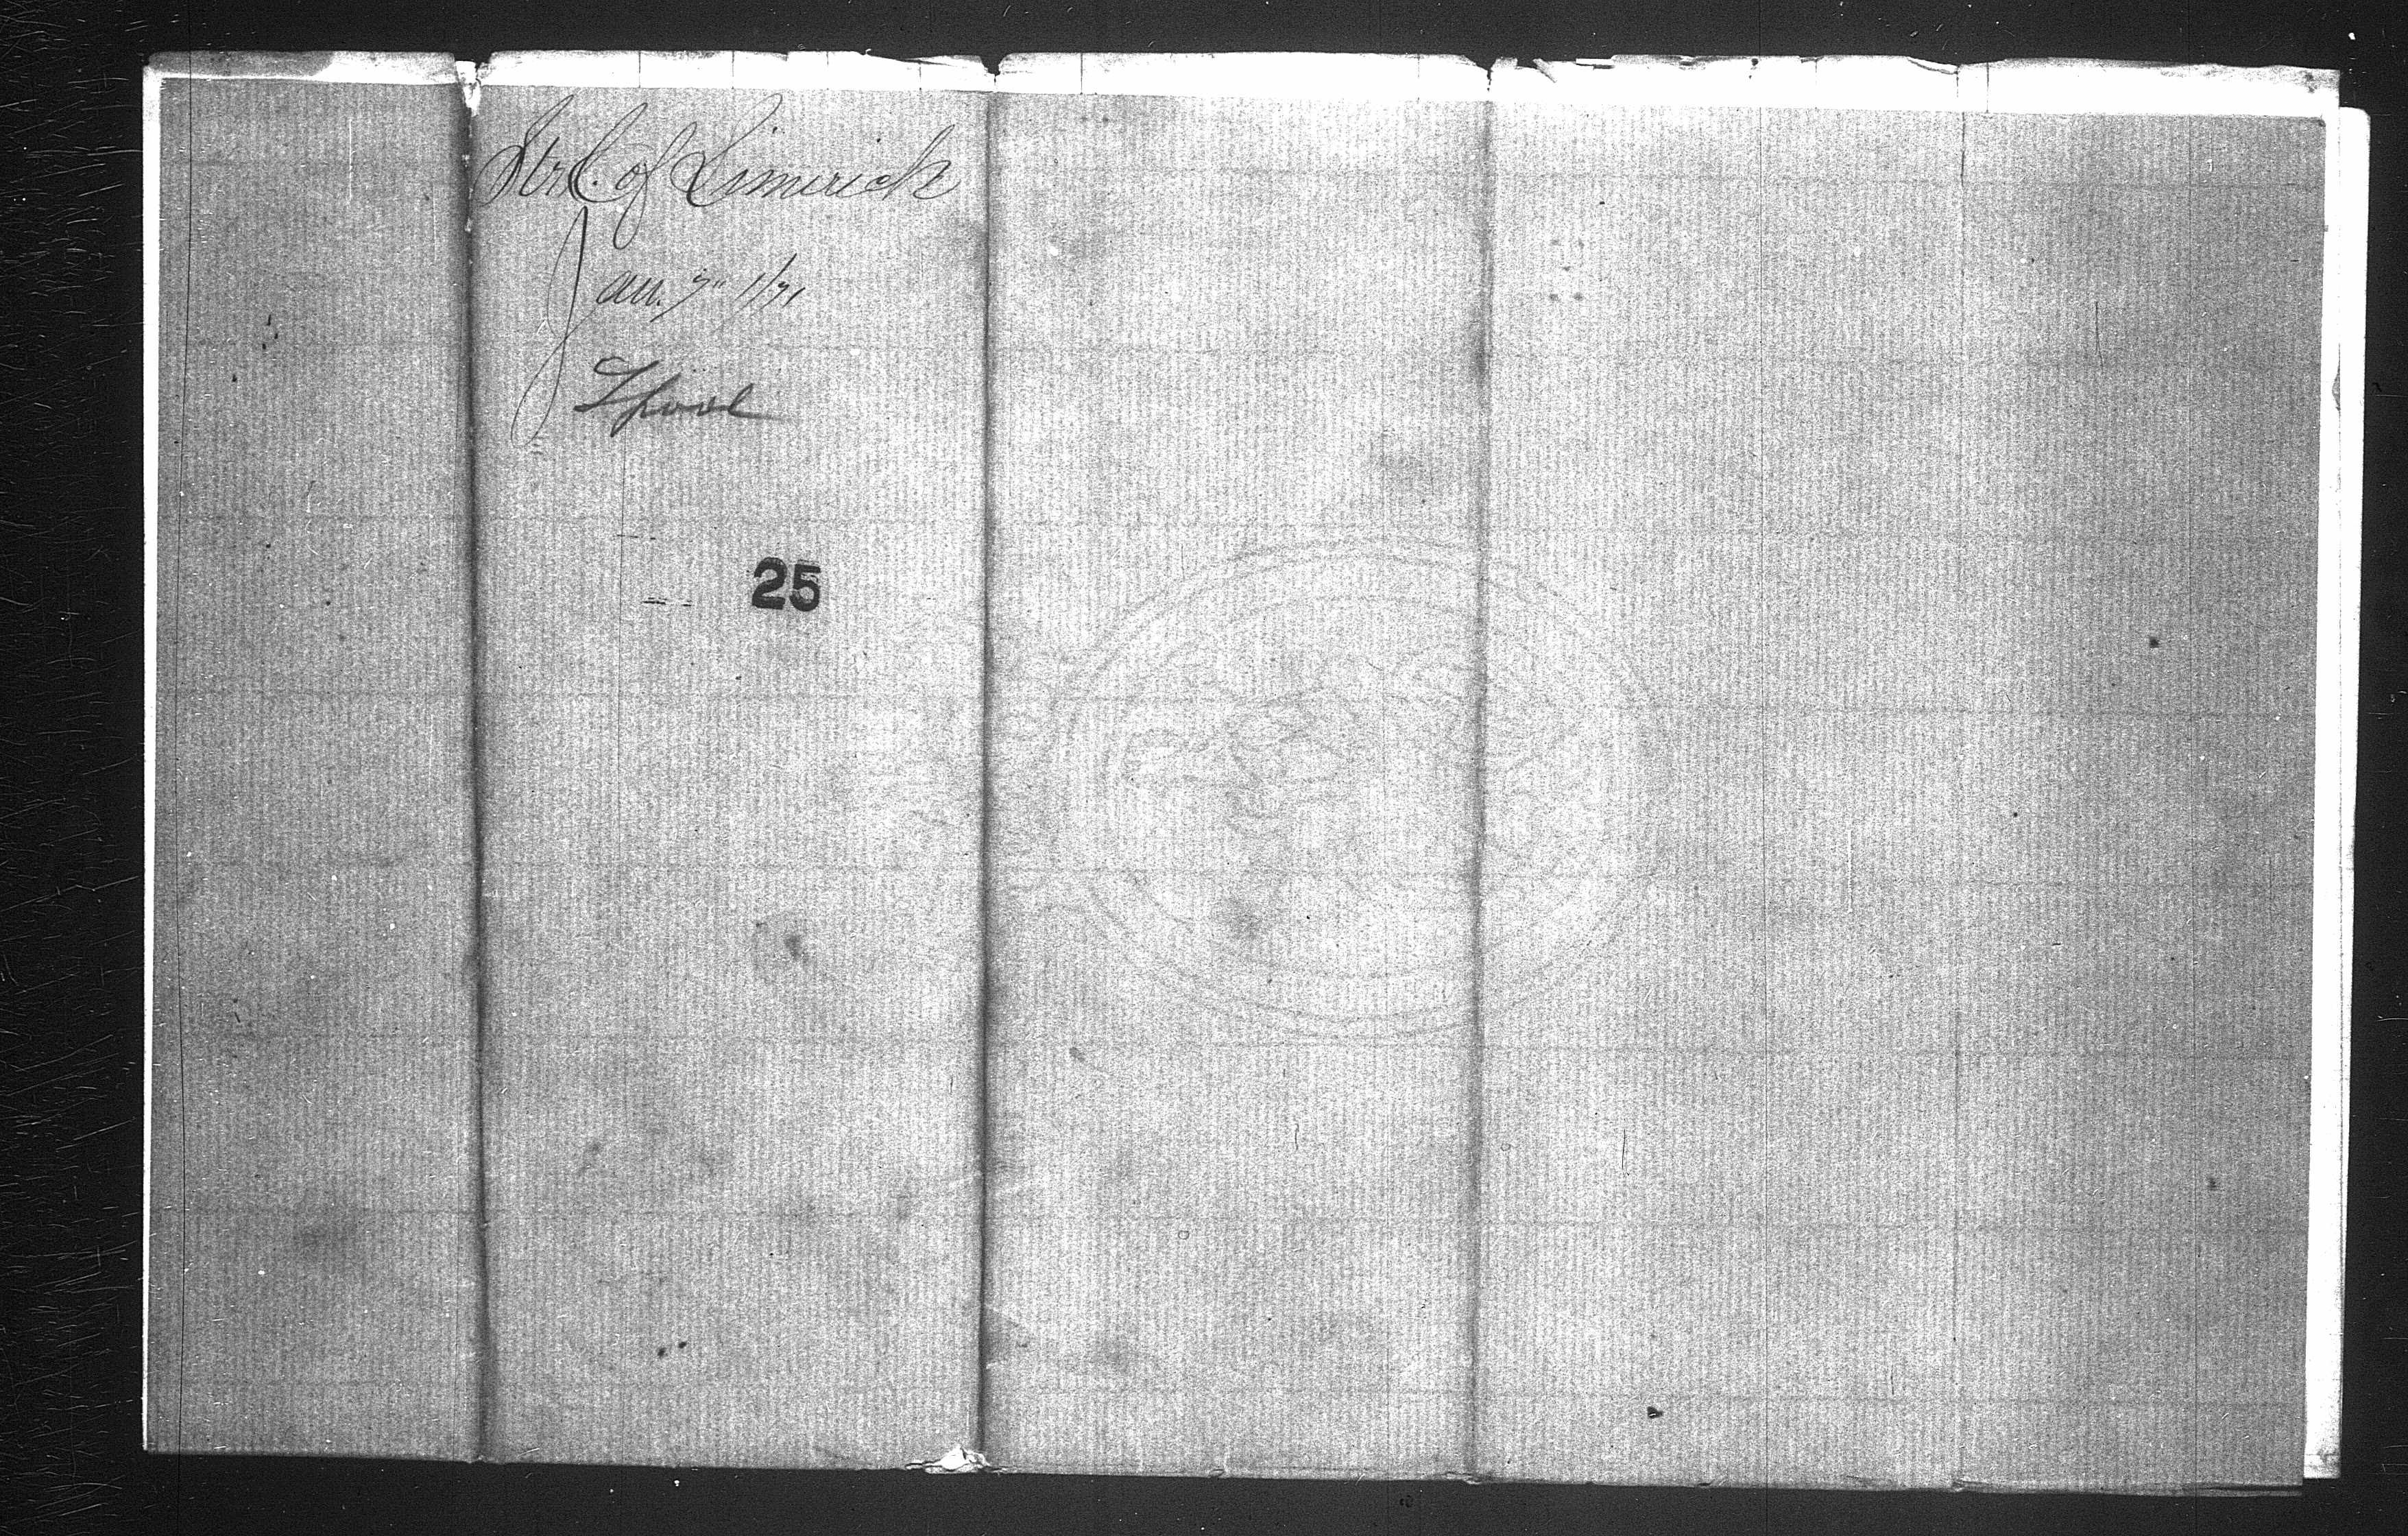 Str C. of Limerick
Jan. 7" 1/71
Lpool
25